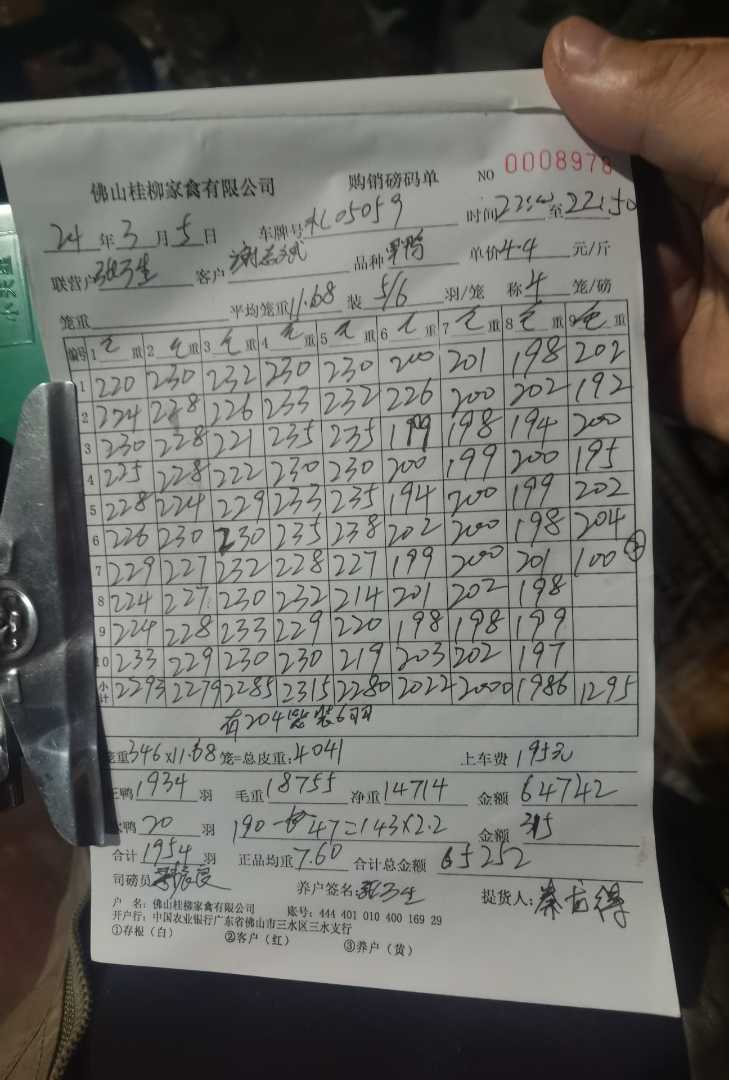 佛山桂柳家禽有限公司 购销磅码单 NO 0008978
24年3月5日 车牌号 05059 时间 至 22:50
联营户 客户 品种 单价4.4元/斤
笼重 平均笼重11.68 装5/6羽/笼 称4笼/磅
编号 1 毛重 2 毛重 3 毛重 4 毛重 5 毛重 6 毛重 7 毛重 8 毛重 9 毛重
1 220 230 232 230 230 200 201 198 202
2 224 228 226 233 232 226 200 202 192
3 230 228 221 235 235 199 198 194 200
4 225 228 222 230 230 200 199 200 195
5 228 224 229 233 235 194 200 199 202
6 226 230 230 235 238 202 200 198 204
7 229 227 232 228 227 199 200 201 100
8 224 227 230 232 214 201 202 198
9 224 228 233 229 220 198 198 199
10 233 229 230 230 219 203 202 197
小计 2293 2279 2285 2315 2280 2022 2000 1986 1295
有204笼装6羽
笼重346×11.68笼=总皮重:4041 上车费 195元
正鸭1934羽 毛重18755 净重14714 金额64742
次鸭20羽 190-47=143×2.2 金额315
合计1954羽 正品均重7.60 合计总金额65252
司磅员 养户签名: 提货人:
户 名: 佛山桂柳家禽有限公司 账号: 444 401 010 400 169 29
开户行: 中国农业银行广东省佛山市三水区三水支行
①存根(白) ②客户(红) ③养户(黄)